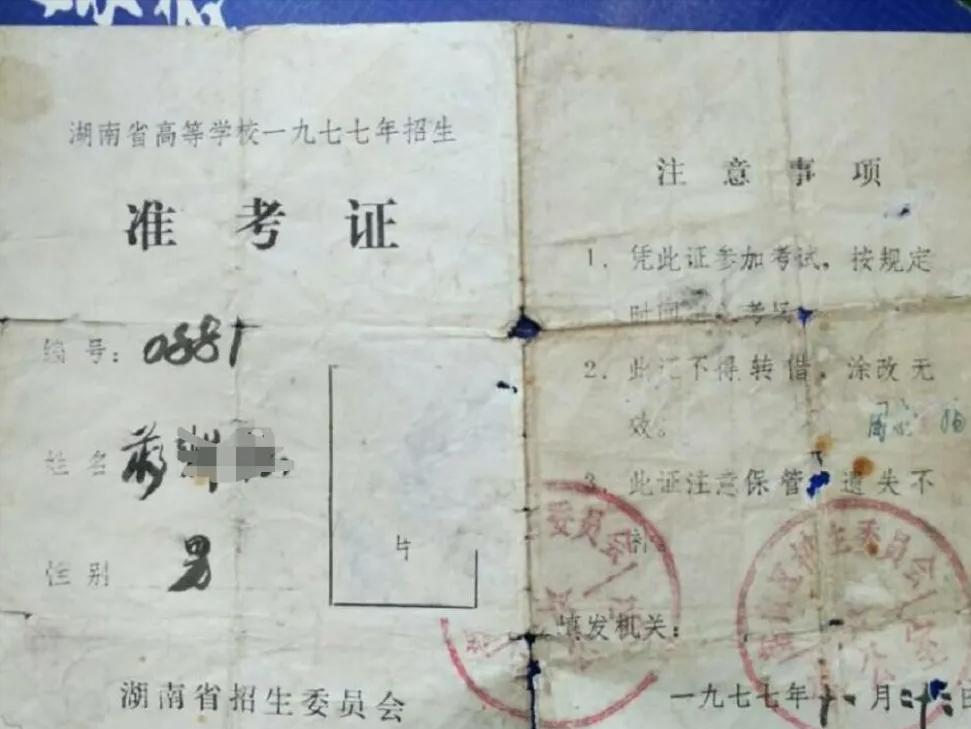 湖南省高等学校一九七七年招生
准考证
编号：0881
姓名 蒋
性别 男
片
湖南省招生委员会
注意事项
1. 凭此证参加考试，按规定
时间 考号
2. 此证不得转借，涂改无
效。
3. 此证注意保管，遗失不
补。
填发机关：
一九七七年十一月二十 日
委员会
招生委员会
办 室